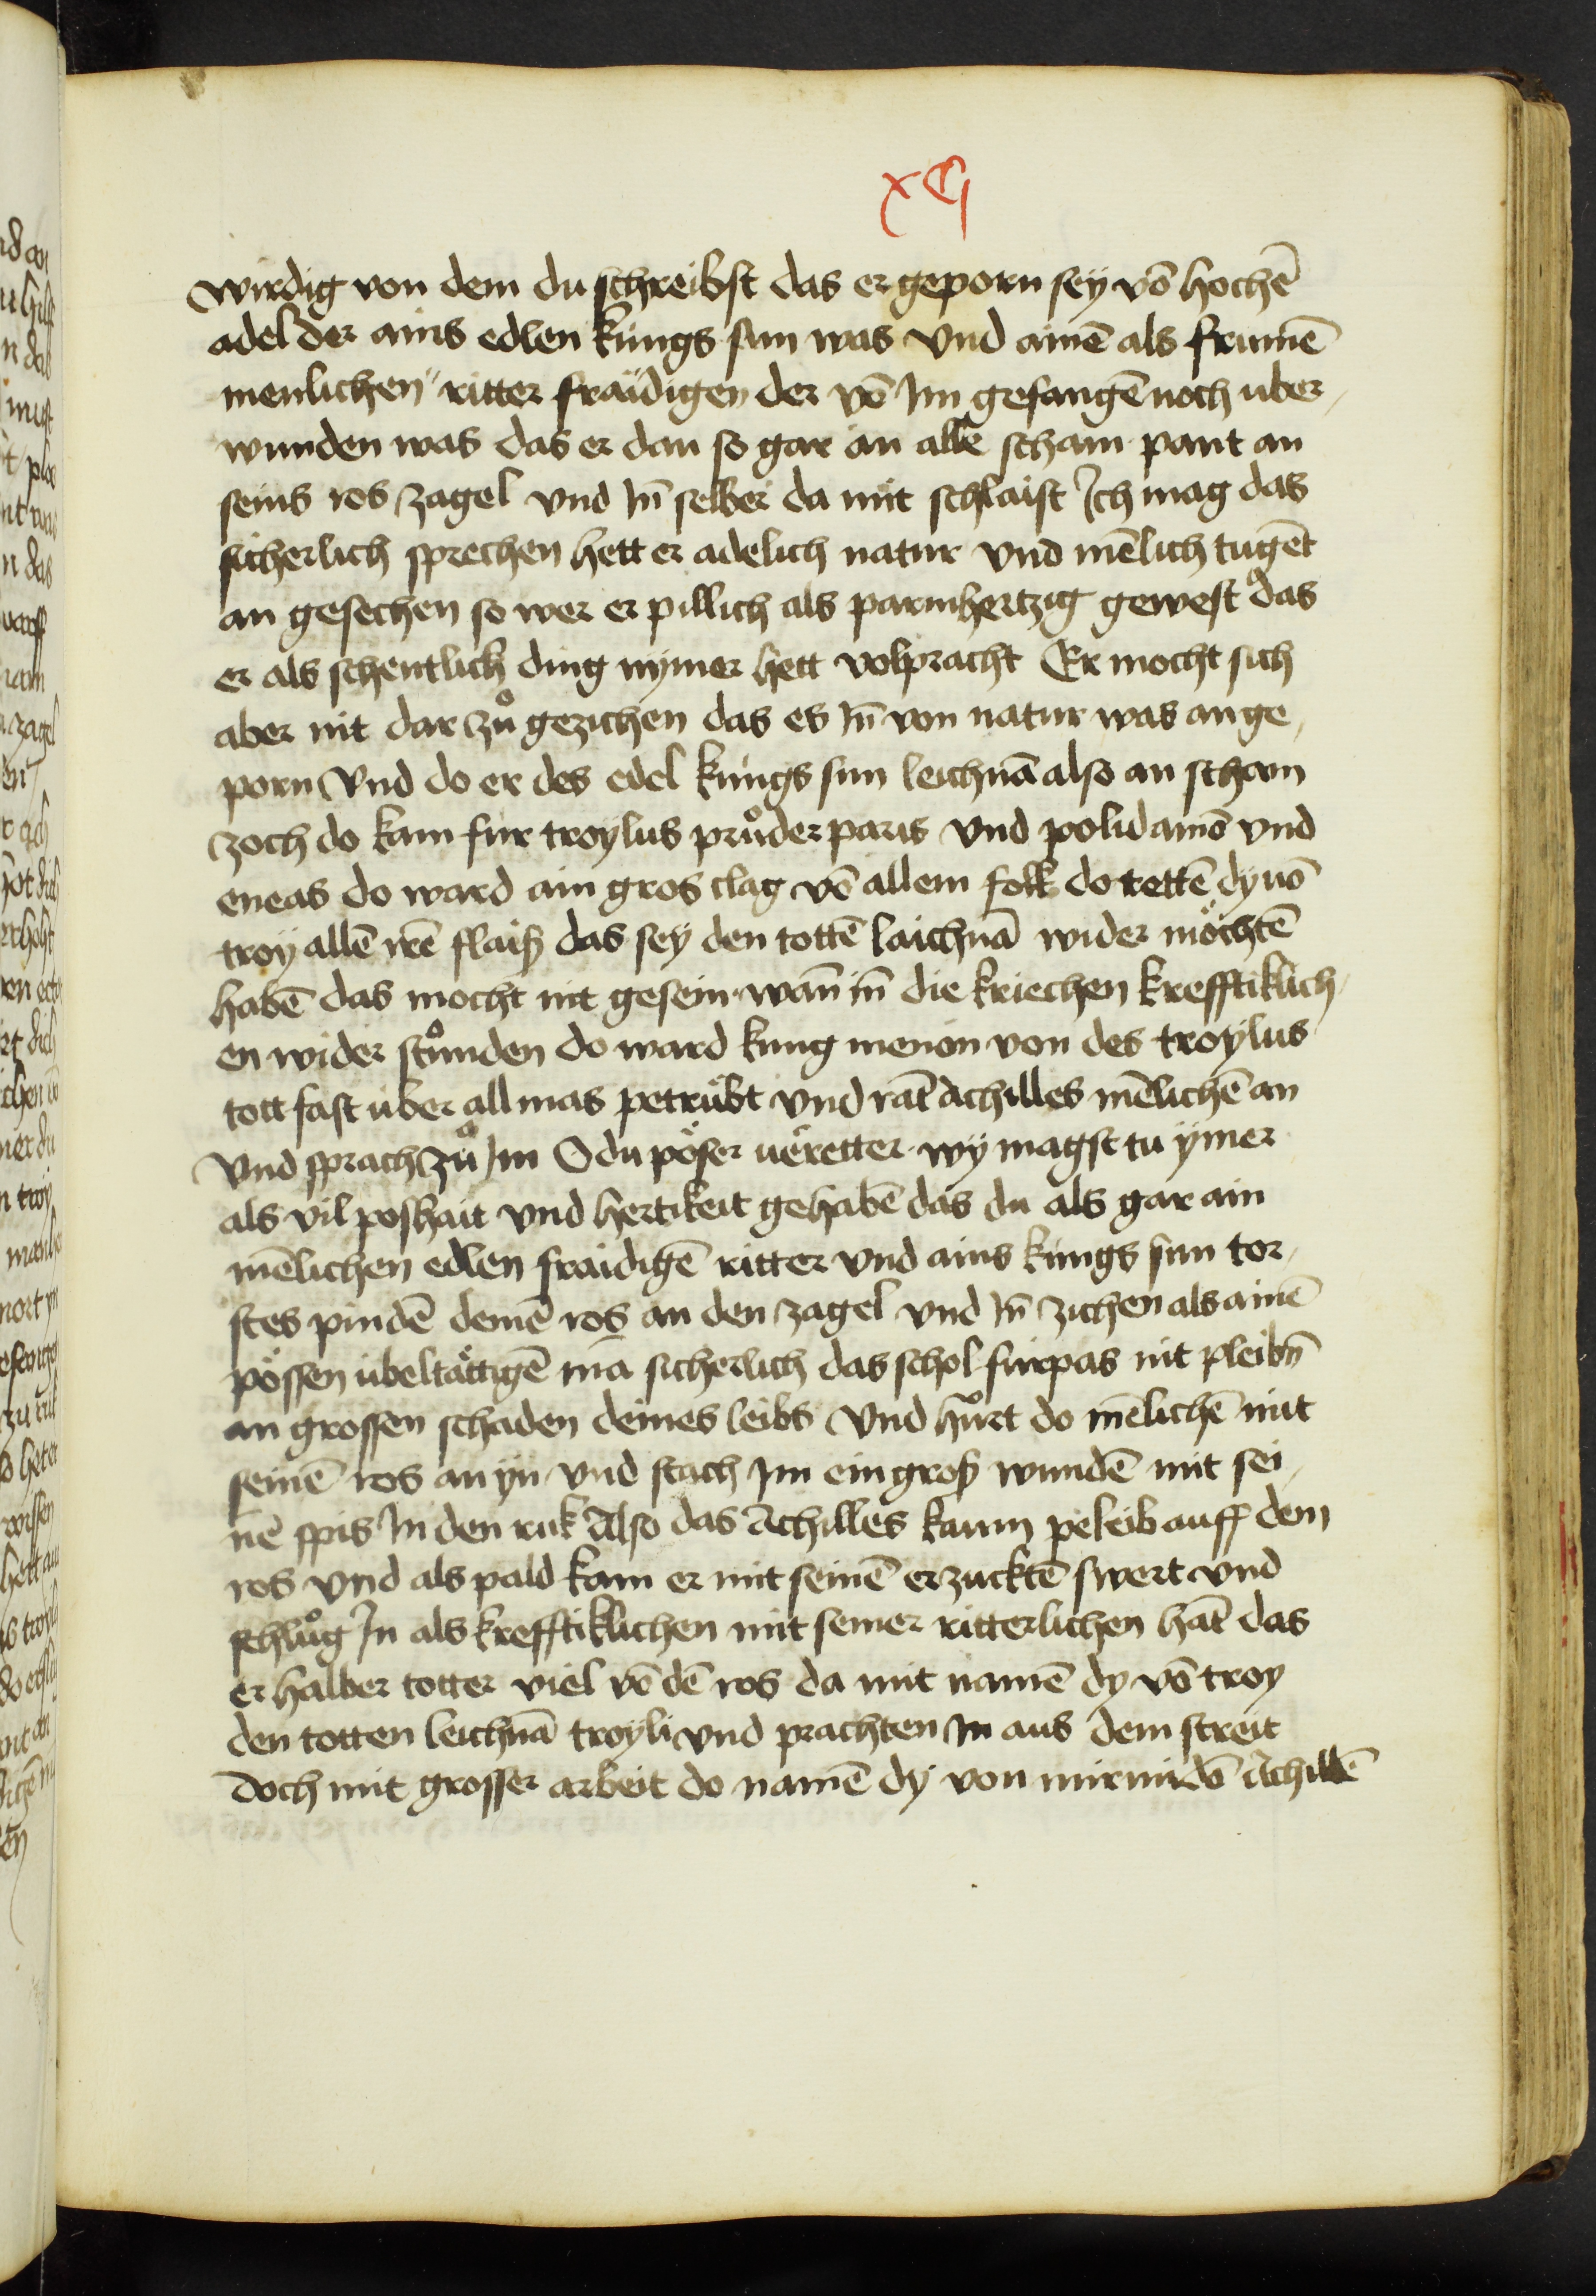 xcj
wirdig von dem du schreibst das er geporn sey võ hochē
adel der ains edlen kungs sun was vnd ainē als frumē
menlichen ritter fraidigen der võ Im gefangē noch uber
wunden was das er dan so gar an alle scham pant an
seins ros zagel vnd In̄ selber da mit schlaist Ich mag das
sicherlich sprechen hett er adelich natur vnd mēlich tugēt
an gesechen so wer er pillich als parmhertzig gewest das
er als schentlich ding nymer hett volpracht Er mocht sich
aber nit dar zů gezichen das es In̄ von natur was an ge
porn Vnd do er des edel kungs sun leichnā also an scham
zoch do kam fur troylus průder paris vnd polidamō vnd
eneas do ward ain gros clag võ allem folk do tettē dy uō
troy allē irē flaiß das sey den tottē laichnā wider möchtē
habē das mocht nit gesein wan̄ in̄ die kriechen krefftiklich
en wider stůnden do ward kung menon von des troylus
tott fast uber all mas petrübt vnd rāt Achilles mēlichē an
Vnd sprach zů Im O du pöser ueretter wy magst tu ymer
als vil poshait vnd hertikeit gehabē das du als gar ain
mēlichen edlen fraidigē ritter vnd ains kungs sun tor
stes pindē deinē ros an den zagel vnd In̄ zichen als ainē
pössen übeltättigē mā sicherlich das schol furpas nit pleibn̄
an grossen schaden deines leibs Vnd hůrt do mēlichē mit
seinē ros an yn vnd stach Im ein groß wundē mit sei
nē spis In den ruk Also das Achilles kaum peleib auff dem
ros vnd als pald kam er mit seinē erzucktē swert vnd
schlůg In als krefftiklichen mit seiner ritterlichen hāt das
er halber totter viel võ dē ros da mit namē dy võ troy
den totten leichnā troyli vnd prachten In aus dem streit
doch mit grosser arbeit do namē dy von mirmidō Achillē